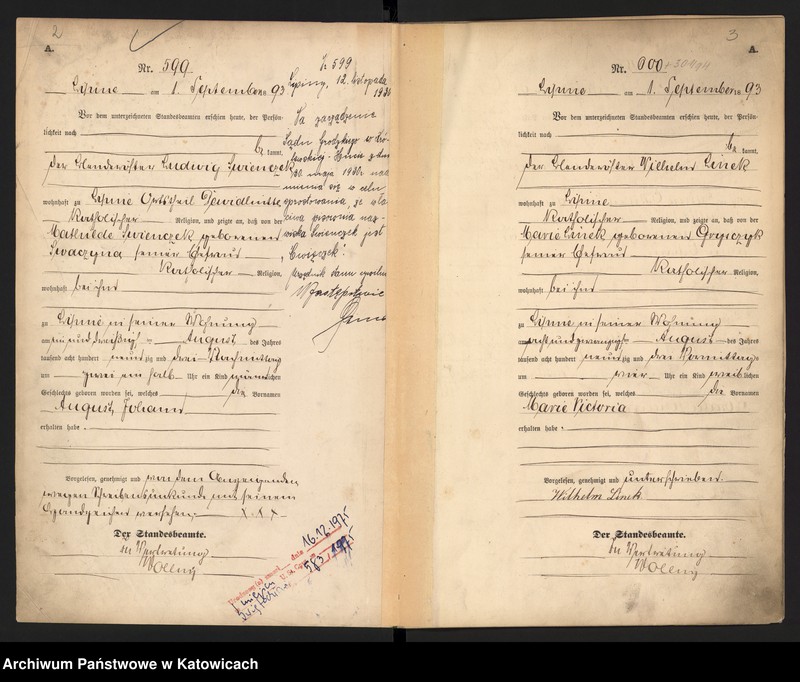 2
A.
Nr. 599
Lipine am 1. September 18 93
Vor dem unterzeichneten Standesbeamten erschien heute, der Persön-
lichkeit nach
be kannt,
der Ludwig
wohnhaft zu Lipine Ortstheil
katholischer Religion, und zeigte an, daß von der
Mathilde geborenen
seiner Ehefrau
katholischer Religion,
wohnhaft bei ihm
zu Lipine in seiner Wohnung
am ein und dreißigsten August des Jahres
tausend acht hundert neunzig und drei Nachmittags
um zwei ein halb Uhr ein Kind männlichen
Geschlechts geboren worden sei, welches die Vornamen
August Johann
erhalten habe.
Vorgelesen, genehmigt und von dem Anzeigenden
wegen Schreibensunkunde mit seinem
Handzeichen versehen. X X X
Der Standesbeamte.
In Vertretung
Wollny
599
Lipiny, 12. listopada
1930
Na zarządzenie
Sądu Grodzkiego w
30. maja 1930
się w celu
sprostowania, że
pisownia naz-
wiska jest
"Cwięczek".
16.12.1975
583/1975
3
A.
Nr. 600
Lipine am 1. September 18 93
Vor dem unterzeichneten Standesbeamten erschien heute, der Persön-
lichkeit nach
be kannt,
der Wilhelm Linek
wohnhaft zu Lipine
katholischer Religion, und zeigte an, daß von der
Marie Linek geborenen
seiner Ehefrau
katholischer Religion,
wohnhaft bei ihm
zu Lipine in seiner Wohnung
am acht und zwanzigsten August des Jahres
tausend acht hundert neunzig und drei Vormittags
um vier Uhr ein Kind weiblichen
Geschlechts geboren worden sei, welches die Vornamen
Marie Victoria
erhalten habe.
Vorgelesen, genehmigt und unterschrieben.
Wilhelm Linek
Der Standesbeamte.
In Vertretung
Wollny
Archiwum Państwowe w Katowicach